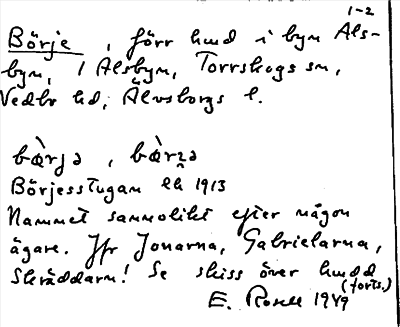 1-2
Börje, förr hmd i byn Als-
byn, 1 Alsbyn, Torrskogs sn,
Vedbo hd, Älvsborgs l.
bœ̀rjə, bœ̀rʒə
Börjesstugan lk 1913
Namnet sannolikt efter någon
ägare. Jfr Jonarna, Gabrielarna,
Skräddarn! Se skiss över hmdd
(forts.)
E. Rosell 1949